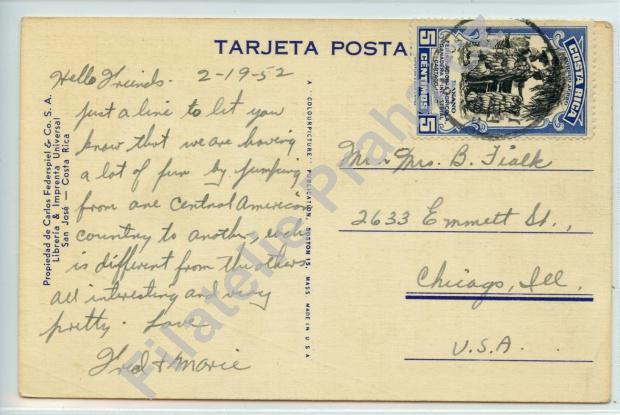 TARJETA POSTA
Hello Friends. 2-19-52
Just a line to let you
know that we are having
a lot of fun by jumping
from one Central American
country to another, each
is different from the others
all interesting and very
pretty. Love
Fred + Marie
Propiedad de Carlos Federspiel & Co. S. A.
Librería & Imprenta Universal
San José — Costa Rica
A "COLOURPICTURE" PUBLICATION, BOSTON 15, MASS. MADE IN U S A
5 CENTIMOS 5
COSTA RICA
Mr. Mrs. B. Fialk
2633 Emmett St.,
Chicago, Ill.
U.S.A.
Filatelie Praha